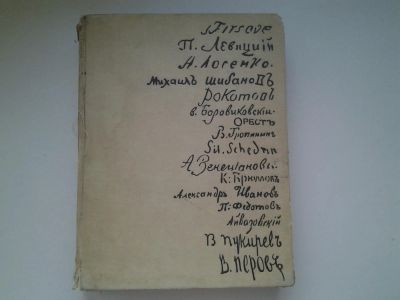 Firsove
П. Левицкій
А. Лосенко.
Михаилъ Шибановъ
Рокотовъ
В. Боровиковскій
ОРЕСТЪ
В. Тропининъ
Sil. Schedrin
А. Венеціановъ
К: Брюлловъ
Александръ Ивановъ
П: Федотовъ
Айвазовскій
В Пукиревъ
В. Перовъ